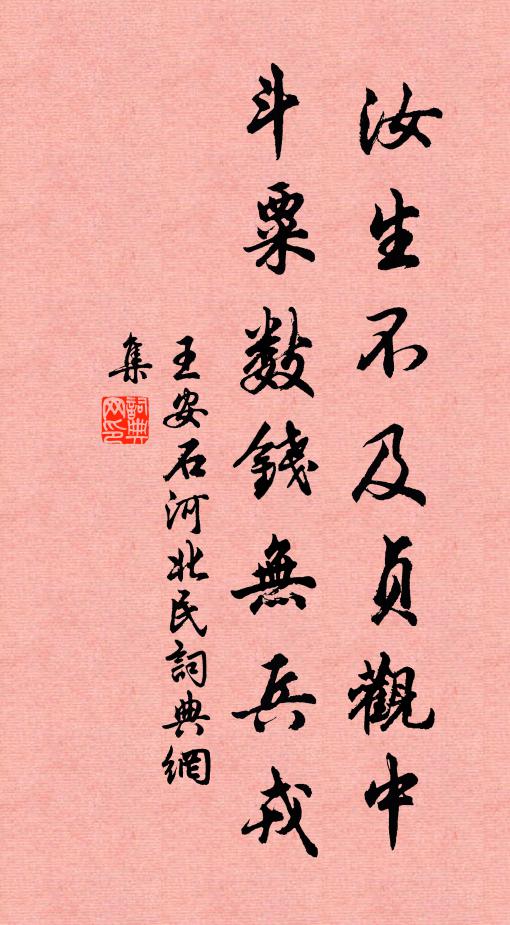 汝生不及貞觀中
斗粟數錢無兵戎
王安石河北民詞典網
集
詞典網印